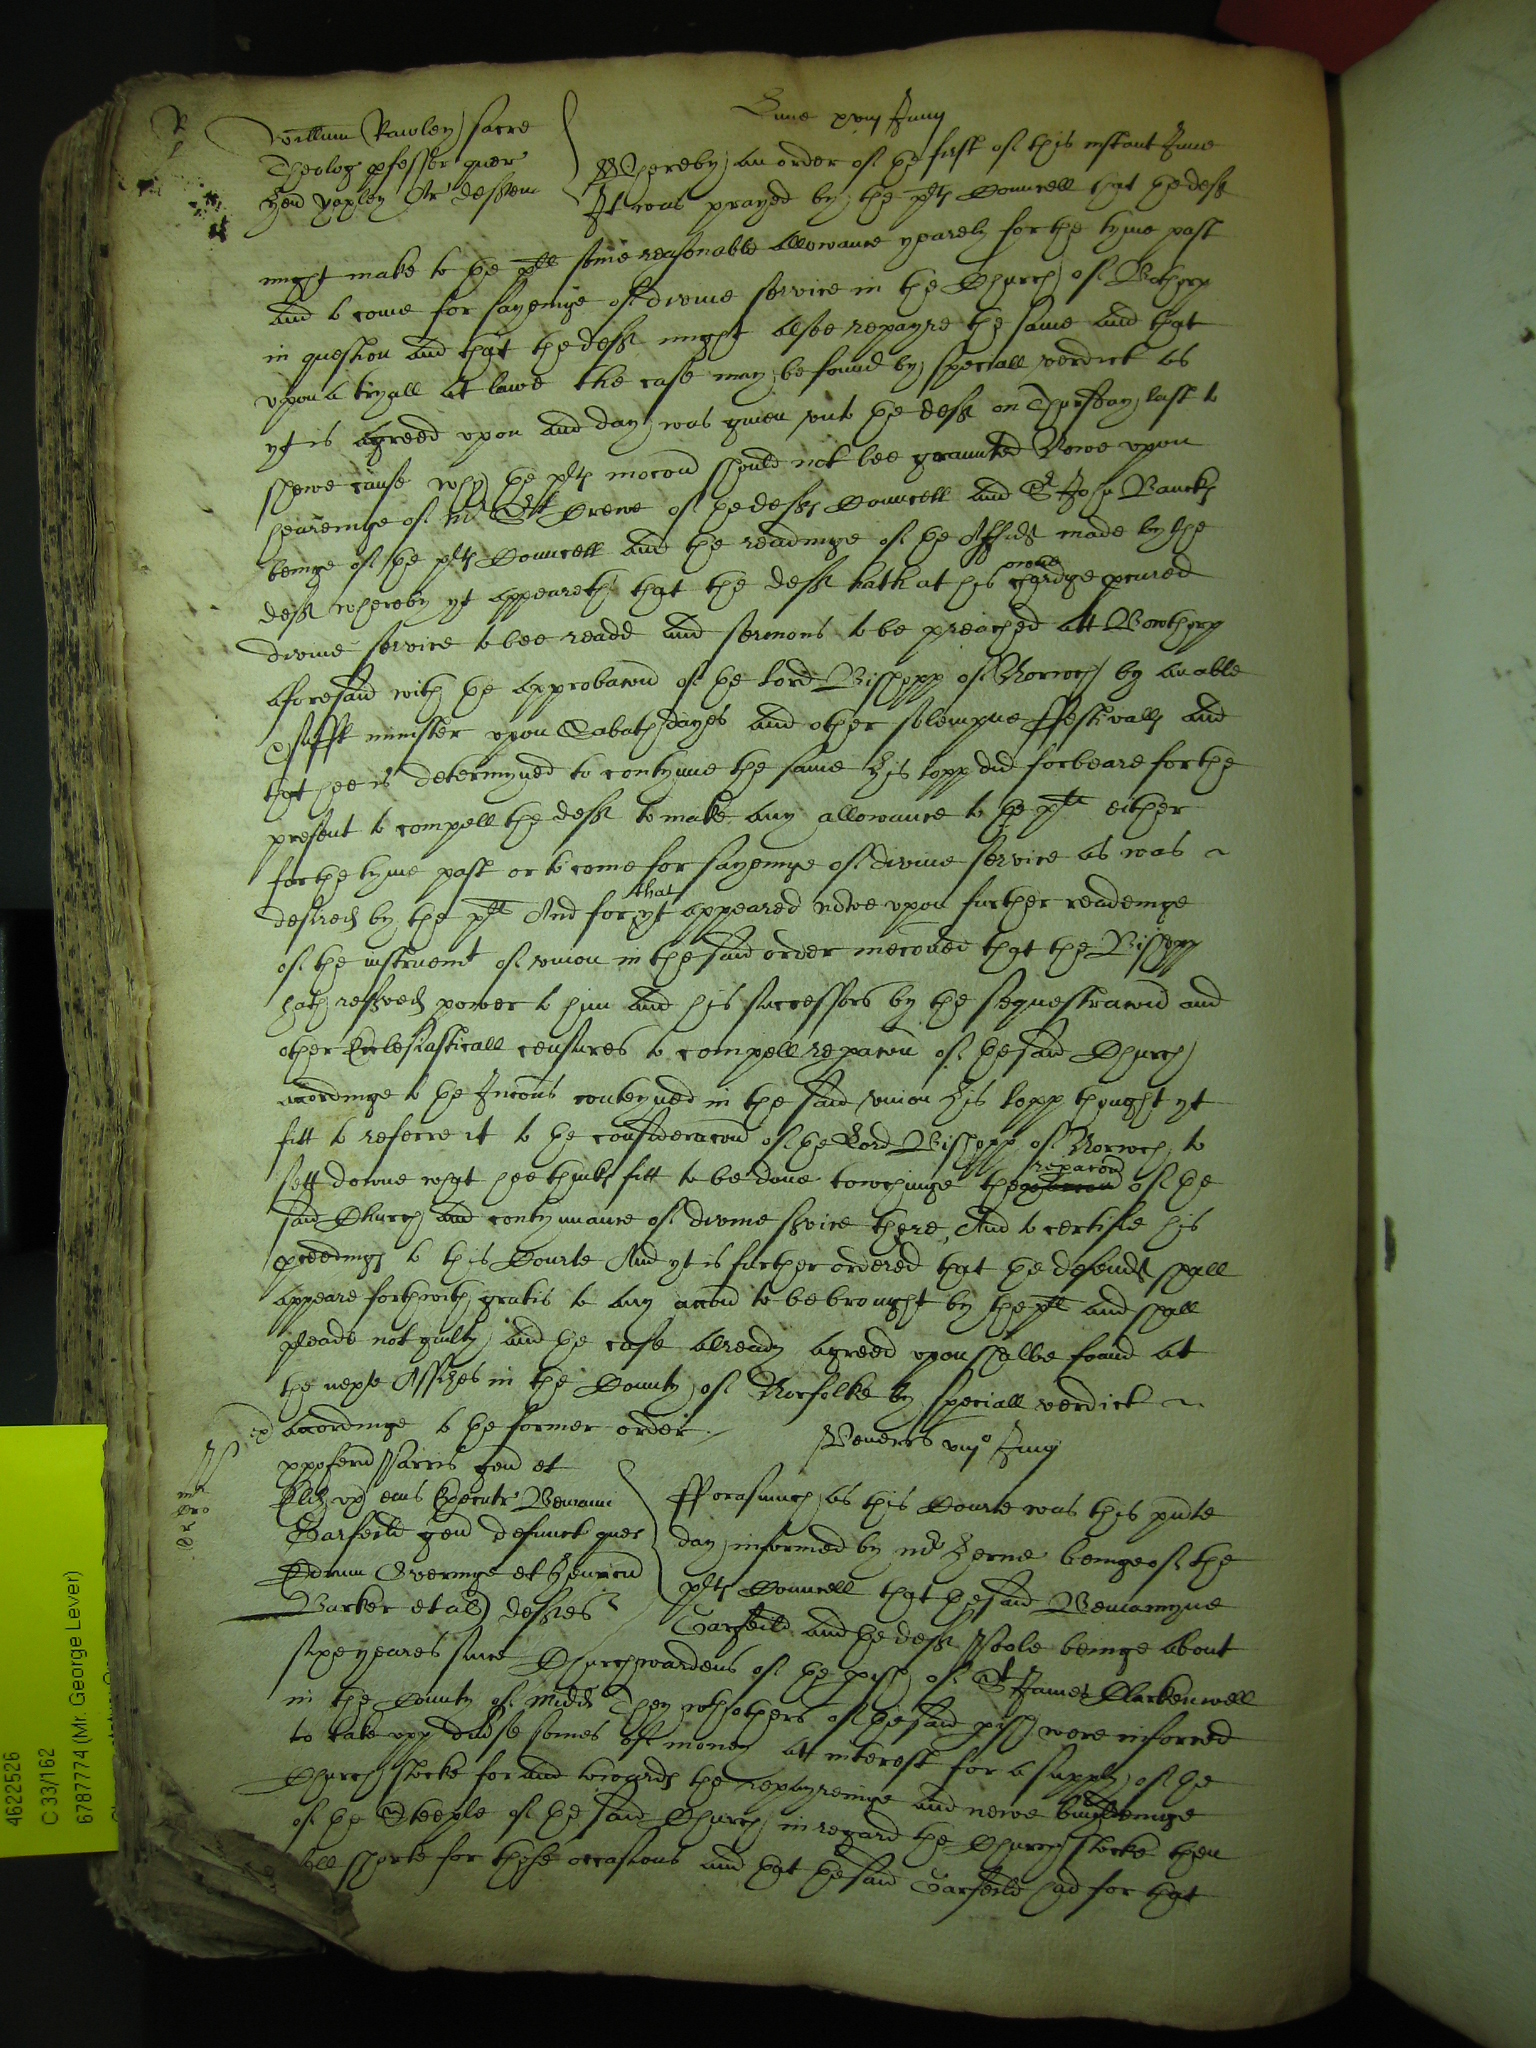 Lune xviij Junij
Willim Rawley sacre
Theolog pfessor quer
Hen Yaxley Ar deffem
Whereby an order of the first of this instant June
It was prayed by the plts Councell that the deft
might make to the plt some reasonable allowance yearely for the tyme past
and to come for sayeinge of divine service in the Church of Bothorp
in question and that the deft might alsoe repayre the same and that
upon a tryall at lawe the case may be found by speciall verdict as
yt is agreed upon and day was given unto the deft on Thursday last to
shewe cause why the plts mocon should not bee graunted Nowe upon
heareinge of Mr Drewe of the defts Councell and Sr John Bancks
beinge of the plts Councell and the readinge of the Affidt made by the
deft whereby yt appeareth that the deft hath at his owne chardge pcured
divine service to bee readd and sermons to be preached att Bowthorp
aforesaid with the approbacon of the Lord Bishopp of Norwch by an able
& sufft minister upon Sabath dayes and other solempne ffestivalls and
that hee is determyned to contynue the same His lopp did forbeare for the
present to compell the deft to make any allowance to the plt either
for the tyme past or to come for sayeinge of divine service as was
desired by the plt And for that yt appeared nowe upon further readeinge
of the instrument of union in the said order mencoed that the Bishopp
hath reserved power to him and his successors by the sequestracon and
other Ecclesiasticall censures to compell reparacon of the said Church
accordinge to the Intencons conteyned in the said union His lopp thought yt
fitt to referre it to the consideracon of the Lord Bishopp of Norwch to
sett downe what hee thinks fitt to be done towchinge the reparacon of the
said Church and contynuance of divine service there, And to certifie his
pceedings to this Courte And yt is further ordered that the defendt shall
appeare forthwith gratis to any accon to be brought by the plt and shall
pleade not guilty and the case already agreed upon shalbe found at
the next Assizes in the County of Norfolke by speciall verdict
accordinge to the former order.
Veneris viijo Junij
xpoferu Harris gen et
Eliz ux eius Executr Beniamin
Garfeild gen defunct quer
Edrum Overinge et Henricu
Barker et al deftes
Fforasmuch as this Courte was this pnte
day informed by Mr Herne beinge of the
plts Councell that the said Beniamyne
Garfeild and the deft Poole beinge about
sixe yeares since Churchwardens of the pish of St James Clarkenwell
in the County of Midd They wth others of the said pish were inforced
to take upp divse somes of money at interest for a supply of the
Church stocke for and towards the repayreinge and newe buyldeinge
of the Steeple of the said Church in regard the Church stocke then
shorte for those occasions and that the said Garfeild had for that
4622526
C 33/162
6787774 (Mr. George Lever)